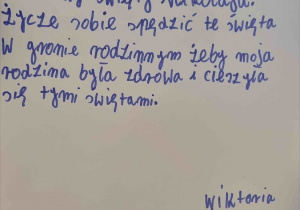 święty Mikołaju.
Życzę sobie spędzić te święta
W gronie rodzinnym żeby moja
rodzina była zdrowa i cieszyła
się tymi świętami.
Wiktoria